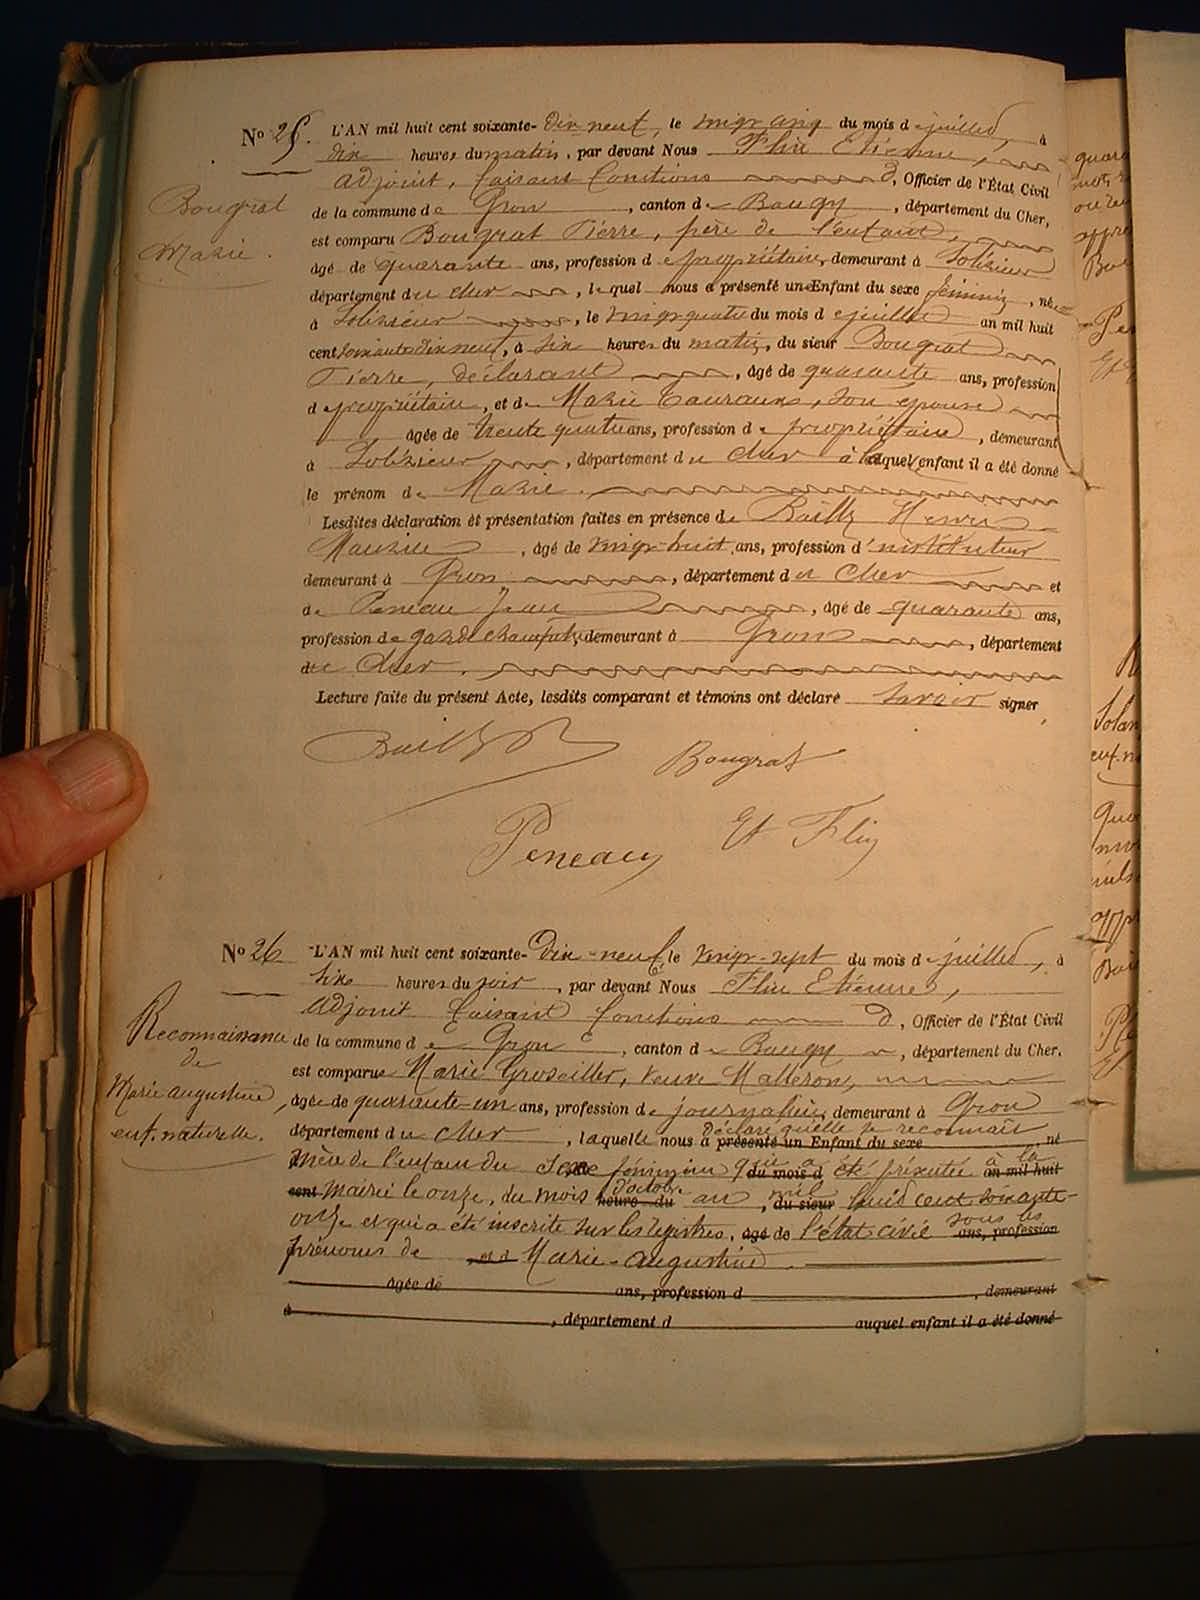 No 25. L'AN mil huit cent soixante-dix neuf, le vingt cinq du mois de juillet, à
dix heures du matin, par devant Nous Flin Etienne,
adjoint, faisant fonctions d, Officier de l'État Civil
Bougrat
Marie.
de la commune de Gron, canton de Baugy, département du Cher,
est comparu Bougrat Pierre, père de l'enfant,
âgé de quarante ans, profession de propriétaire, demeurant à Solérieux
département du Cher, lequel nous a présenté un Enfant du sexe féminin, né
à Solérieux, le vingt quatre du mois de juillet an mil huit
cent soixante dix neuf, à six heures du matin, du sieur Bougrat
Pierre, déclarant, âgé de quarante ans, profession
de propriétaire, et de Marie, son épouse
âgée de trente quatre ans, profession de propriétaire, demeurant
à Solérieux, département du Cher à laquel enfant il a été donné
le prénom de Marie.
Lesdites déclaration et présentation faites en présence de Bailly Henri
Maurice, âgé de vingt-huit ans, profession d'instituteur
demeurant à Gron, département du Cher et
de Peneau Jean, âgé de quarante ans,
profession de garde champêtre, demeurant à Gron, département
du Cher.
Lecture faite du présent Acte, lesdits comparant et témoins ont déclaré savoir signer
Bailly Bougrat
Peneau Et Flin
No 26 L'AN mil huit cent soixante-Dix-neuf, le vingt-sept du mois de juillet, à
six heures du soir, par devant Nous Flin Etienne,
adjoint faisant fonctions d, Officier de l'État Civil
Reconnaissance
de
Marie augustine,
enf. naturelle.
de la commune de Gron, canton de Baugy, département du Cher.
est comparue Marie Groseiller, veuve Malleron,
âgée de quarante-un ans, profession de journalière, demeurant à Gron
département du Cher, laquelle nous a déclaré qu'elle se reconnaît présenté un Enfant du sexe né
mère de l'enfant du sexe féminin qui a du mois d été présentée à la an mil huit
cent mairie le onze, du mois d'octobre heure du an, mil du sieur huit cent soixante-
onze et qui a été inscrite sur les registres, âgé de l'état civil sous les ans, profession
prénoms de et d Marie-augustine.
âgée de ans, profession d, demeurant
à, département d auquel enfant il a été donné